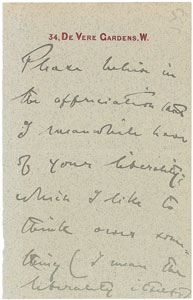 34, De Vere Gardens. W.
Please believe in
the appreciation
I meanwhile have
of your liberality;
which I like to
think owes some-
thing (I mean the
liberality itself